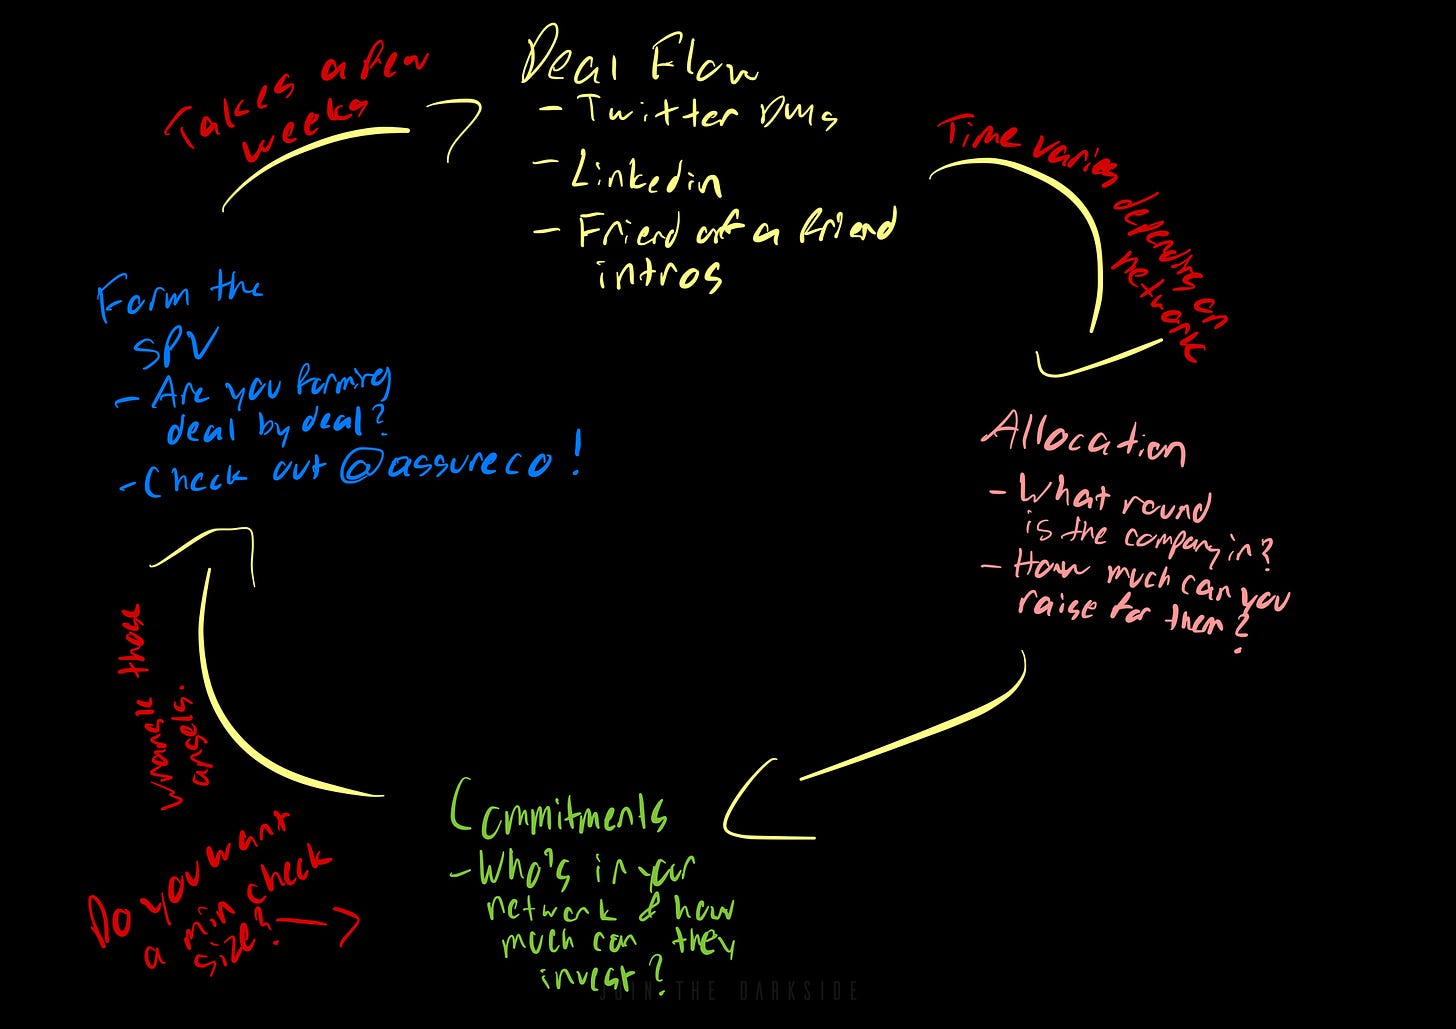 Takes a few
weeks
Deal Flow
- Twitter DMs
- Linkedin
- Friend of a friend
intros
Time varies depending on
network
Form the
SPV
- Are you forming
deal by deal?
- Check out @assureco!
Allocation
- What round
is the company in?
- How much can you
raise for them?
Wrangle those
angels.
Commitments
- Who's in your
network & how
much can they
invest?
Do you want
a min check
size? →
JOIN THE DARKSIDE